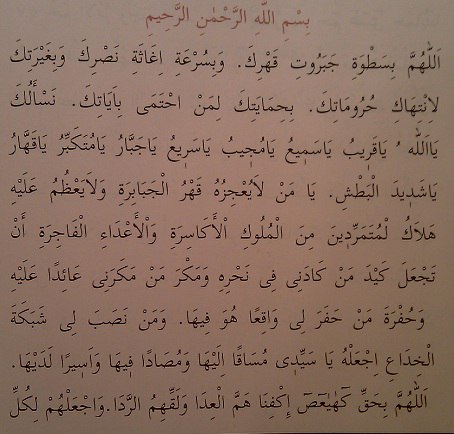 بِسْمِ اللّٰهِ الرَّحْمٰنِ الرَّحِيمِ
اَللّٰهُمَّ بِسَطْوَةِ جَبَرُوتِ قَهْرِكَ. وَبِسُرْعَةِ اِغَاثَةِ نَصْرِكَ وَبِغَيْرَتِكَ
لِاِنْتِهَاكِ حُرُومَاتِكَ. بِحِمَايَتِكَ لِمَنْ اِحْتَمَى بِآيَاتِكَ. نَسْأَلُكَ
يَااَللّٰه ُ يَاقَرِيبُ يَاسَمِيعُ يَامُجِيبُ يَاسَرِيعُ يَاجَبَّارُ يَامُتَكَبِّرُ يَاقَهَّارُ
يَاشَدِيدَ الْبَطْشِ. يَا مَنْ لَايُعْجِزُهُ قَهْرُ الْجَبَابِرَةِ وَلَايَعْظُمُ عَلَيْهِ
هَلَاكُ لْمُتَمَرِّدِينَ مِنَ الْمُلُوكِ الْأَكَاسِرَةِ وَالْأَعْدَاءِ الْفَاجِرَةِ أَنْ
تَجْعَلَ كَيْدَ مَنْ كَادَنِى فِى نَحْرِهِ وَمَكْرَ مَنْ مَكَرَنِى عَائِدًا عَلَيْهِ
وَحُفْرَةَ مَنْ حَفَرَ لِى وَاقِعًا هُوَ فِيهَا. وَمَنْ نَصَبَ لِى شَبَكَةَ
الْخِدَاعِ اِجْعَلْهُ يَا سَيِّدِى مُسَاقًا اِلَيْهَا وَمُصَادًا فِيهَا وَاَسِيرًا لَدَيْهَا.
اَللّٰهُمَّ بِحَقِّ كٓهٰيٰعٓصٓ اِكْفِنَا هَمَّ الْعِدَا وَلَقِّهِمُ الرَّدَا.وَاجْعَلْهُمْ لِكُلِّ